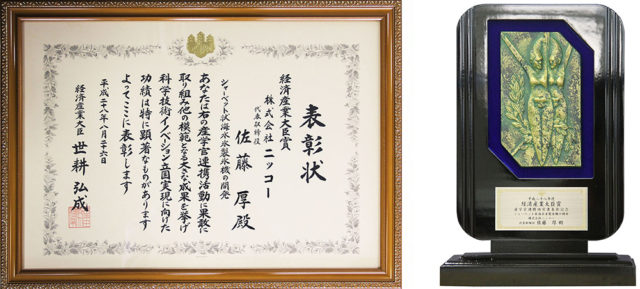 表彰状
経済産業大臣賞
株式会社ニッコー
代表取締役
佐藤 厚 殿
シャーベット状海水氷製氷機の開発
あなたは右の産学官連携活動に果敢に
取り組み他の模範となる大きな成果を挙げ
科学技術イノベーション立国実現に向けた
功績は特に顕著なものがあります
よってここに表彰します
平成二十八年八月二十六日
経済産業大臣 世耕 弘成
経済産業大臣賞
佐藤 厚 殿